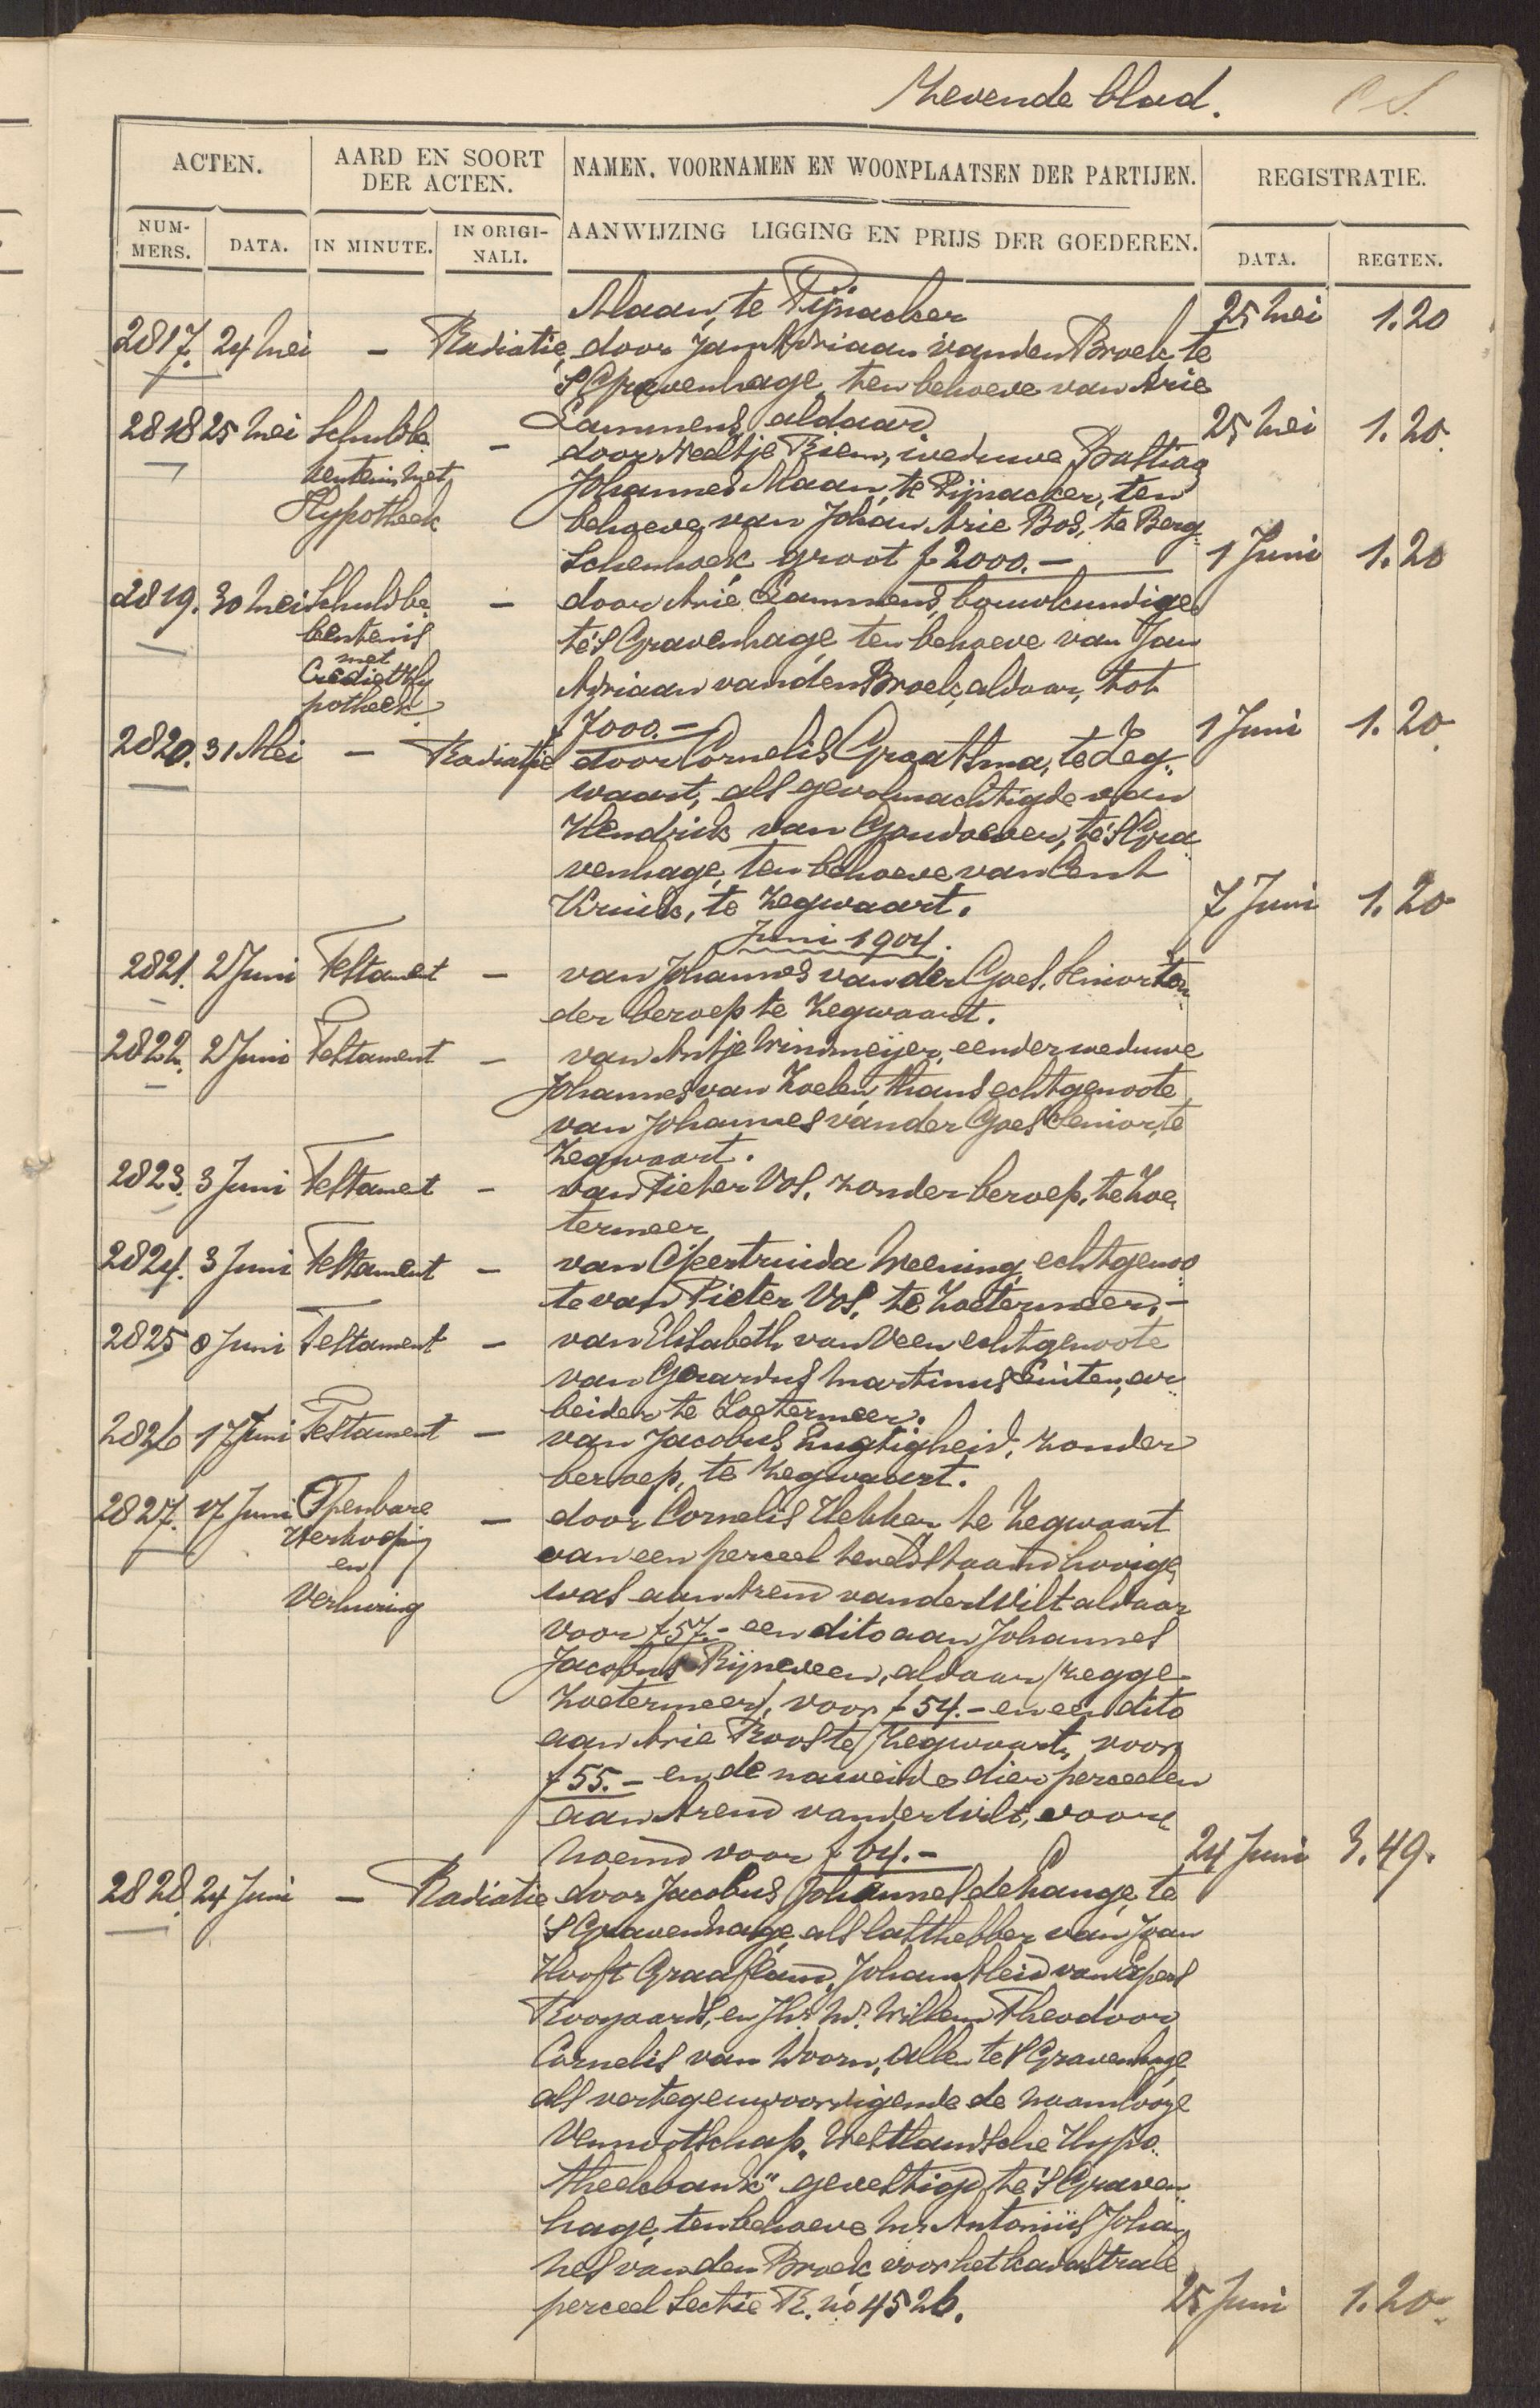 Zevende blad.
ACTEN.
AARD EN SOORT DER ACTEN.
NAMEN, VOORNAMEN EN WOONPLAATSEN DER PARTIJEN.
REGISTRATIE.
NUM-MERS.
DATA.
IN MINUTE.
IN ORIGI-NALI.
AANWIJZING LIGGING EN PRIJS DER GOEDEREN.
DATA.
REGTEN.
Maan, te Pijnacker 25 Mei 1.20
2817. 24 Mei - Radiatie door Jan Adriaan van den Broek te
'S Gravenhage, ten behoeve van Arie
Lammens, aldaar 25 Mei 1.20
2818 25 Mei Schuldbe - door Neeltje Riem, weduwe Bastiaan
kentenis met Johannes Maan, te Pijnacker, ten
Hypotheek behoeve van Johan Arie Bos, te Berg
Schenhoek groot f 2000.- 1 Juni 1.20
2819. 30 Mei Schuldbe - door Arie Lammens, bouwkundige
kentenis te 'S Gravenhage ten behoeve van Jan
met
Crediethy Adriaan van den Broek, aldaar, tot
potheek
f 7000.- 1 Juni 1.20
2820. 31 Mei - Radiatie door Cornelis Graatsma, te Zeg
waart, als gevolmachtigde van
Hendrik van Goudoever, te 'S Gra
venhage, ten behoeve van Cent
Kruik, te Zegwaart. 7 Juni 1.20
Juni 1904.
2821. 2 Juni Testament - van Johannes van der Goes, Senior zon
der beroep te Zegwaart.
2822. 2 Juni Testament - van Antje Windmeijer, eerder weduwe
Johannes van Zoelen, thans echtgenoote
van Johannes van der Goes Senior, te
Zegwaart.
2823. 3 Juni Testament - van Pieter Vos, zonder beroep, te Zoe
termeer
2824. 3 Juni Testament - van Geertruida Meening echtgenoo
te van Pieter Vos, te Zoetermeer.-
2825 8 Juni Testament - van Elisabeth van Veen echtgenoote
van Gerardus Martinus Luiten, ar
beider te Zoetermeer.
2826 17 Juni Testament - van Jacobus Lugtigheid, zonder
beroep, te Zegwaart.
2827. 17 Juni Openbare - door Cornelis Hekker te Zegwaart
Verkoop van een perceel te veld staand hooige
en was aan Arend van der Wilt aldaar
Verhuring voor f 57.- een dito aan Johannes
Jacobus Rijneveen, aldaar (zegge
Zoetermeer), voor f 54.- en een dito
aan Arie Roos te Zegwaart, voor
f 55.- en de naweide dier perceelen
aan Arend van der Wilt, voor
noemd voor f 64.- 24 Juni 3.49.
2828. 24 Juni - Radiatie door Jacobus Johannes de Lange, te
'S Gravenhage als lasthebber van Joan
Hooft Graafland, Johan Aleid van
Royaards, en Jhr. Mr. Willem Theodoor
Cornelis van Doorn, allen te 'S Gravenhage
als vertegenwoordigende de naamlooze
Vennootschap "Westlandsche Hypo
theekbank" gevestigd te 'S Graven
hage, ten behoeve Mr Antonius Johan
nes van den Broek voor het kadastrale
perceel Sectie R. no 4526. 25 Juni 1.20